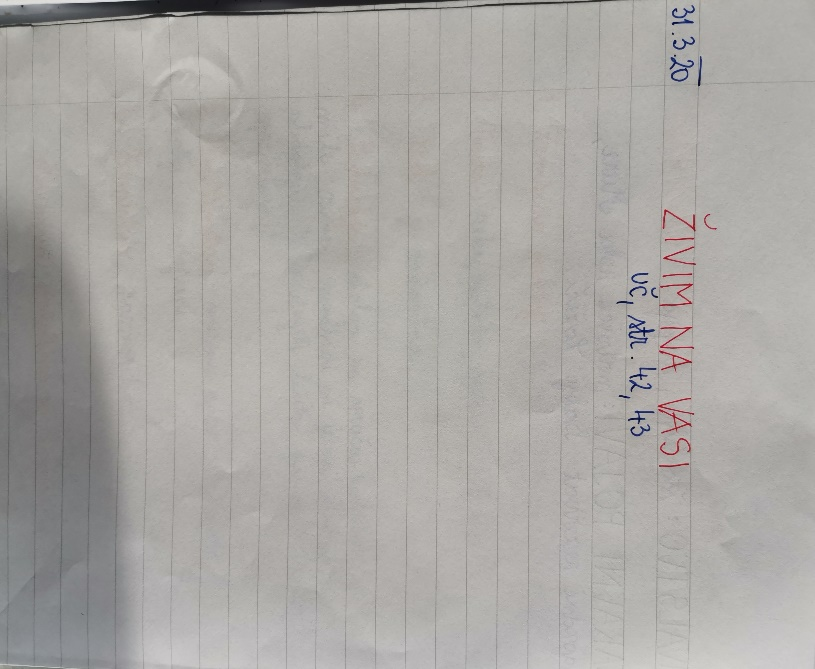 31.3.20
ŽIVIM NA VASI
UČ, str. 42, 43